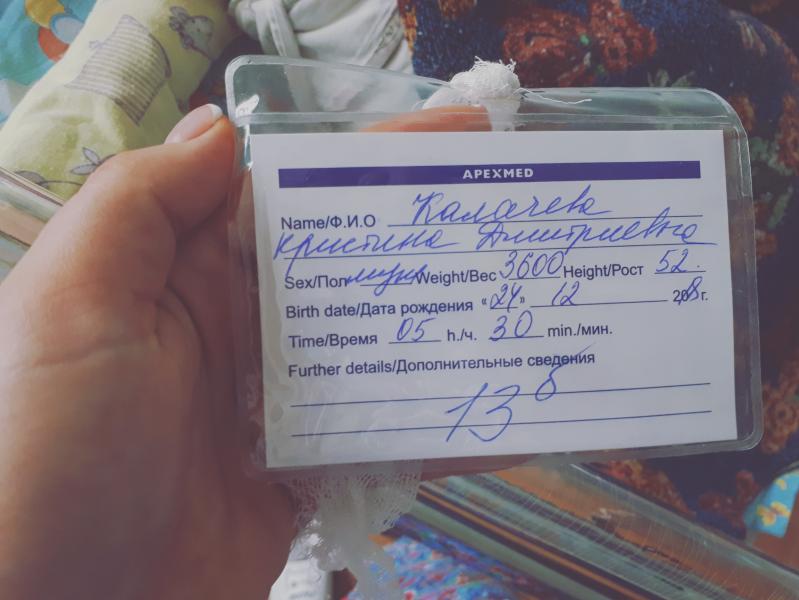 APEXMED
Name/Ф.И.О Калачева
Кристина Дмитриевна
Sex/Пол муж Weight/Вес 3600 Height/Рост 52.
Birth date/Дата рождения «24» 12 2018 г.
Time/Время 05 h./ч. 30 min./мин.
Further details/Дополнительные сведения
13 б